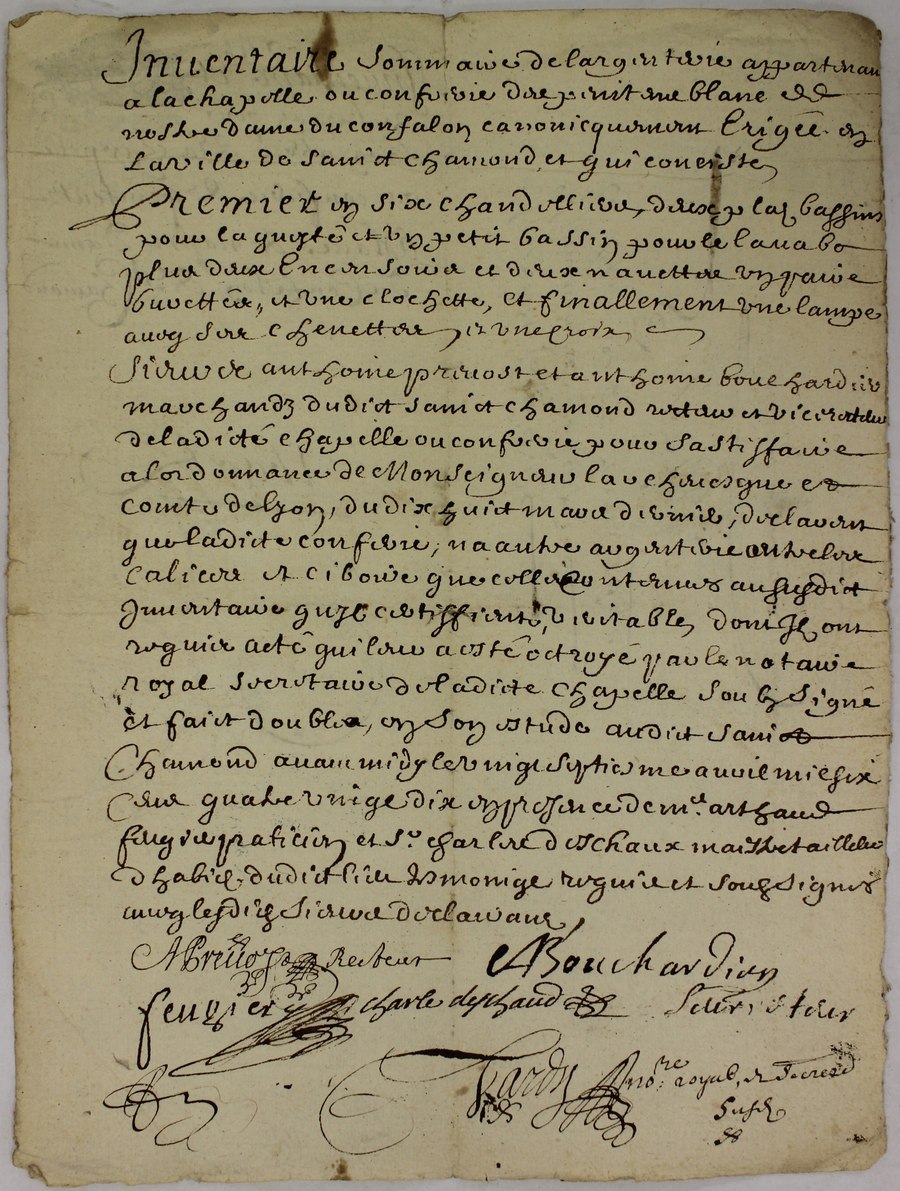 Inuentaire Sommaire de largenterie appartenan
a la chapelle ou confrerie des penitens blanc de
nostre dame du confalon canonicquement Erigée en
La ville de sainct chamond et qui concistes
Premier en six chandelliers, deux plaz bassins
pour la queste et vn petit bassin pour le lauabo
plus deux Encensoirs et deux nauettes vn paire
buuettes, et vne clochette, et finallement vne lampe
auec ses chenettes et vne croix
Sieurs anthoine preuost et anthoine bouchardier
marchandz dudict sainct chamond recteur et vicerecteur
de ladicte chapelle ou confrerie pour sastisfaire
a lordonnance de Monseigneur larchevesque et
comte de Lyon, du dix huict mars dernier, declarent
que ladicte confrerie, na autre argenterie outre les
calices et ciboire que celles contenues au susdict
Inuentaire quilz certiffient veritable, dont Ilz ont
requis acte qui leur a esté octroyé par le notaire
royal secretaire de ladicte chapelle soubsigné
et faict double, en son estude audict sainct
Chamond auant midy le vingt septiesme auril mil six
Cens quatre vingt dix en presence de me. arthaud
feugier praticien et sr. charles deschaux maistre tailleur
dhabitz dudict lieu tesmoings requis et soubsignes
auec lesdictz sieurs declarans,
APreuost Recteur ABouchardier
feugier charle deschaud Soubrecteur
Tardy nore. royal, et Secred
Susd